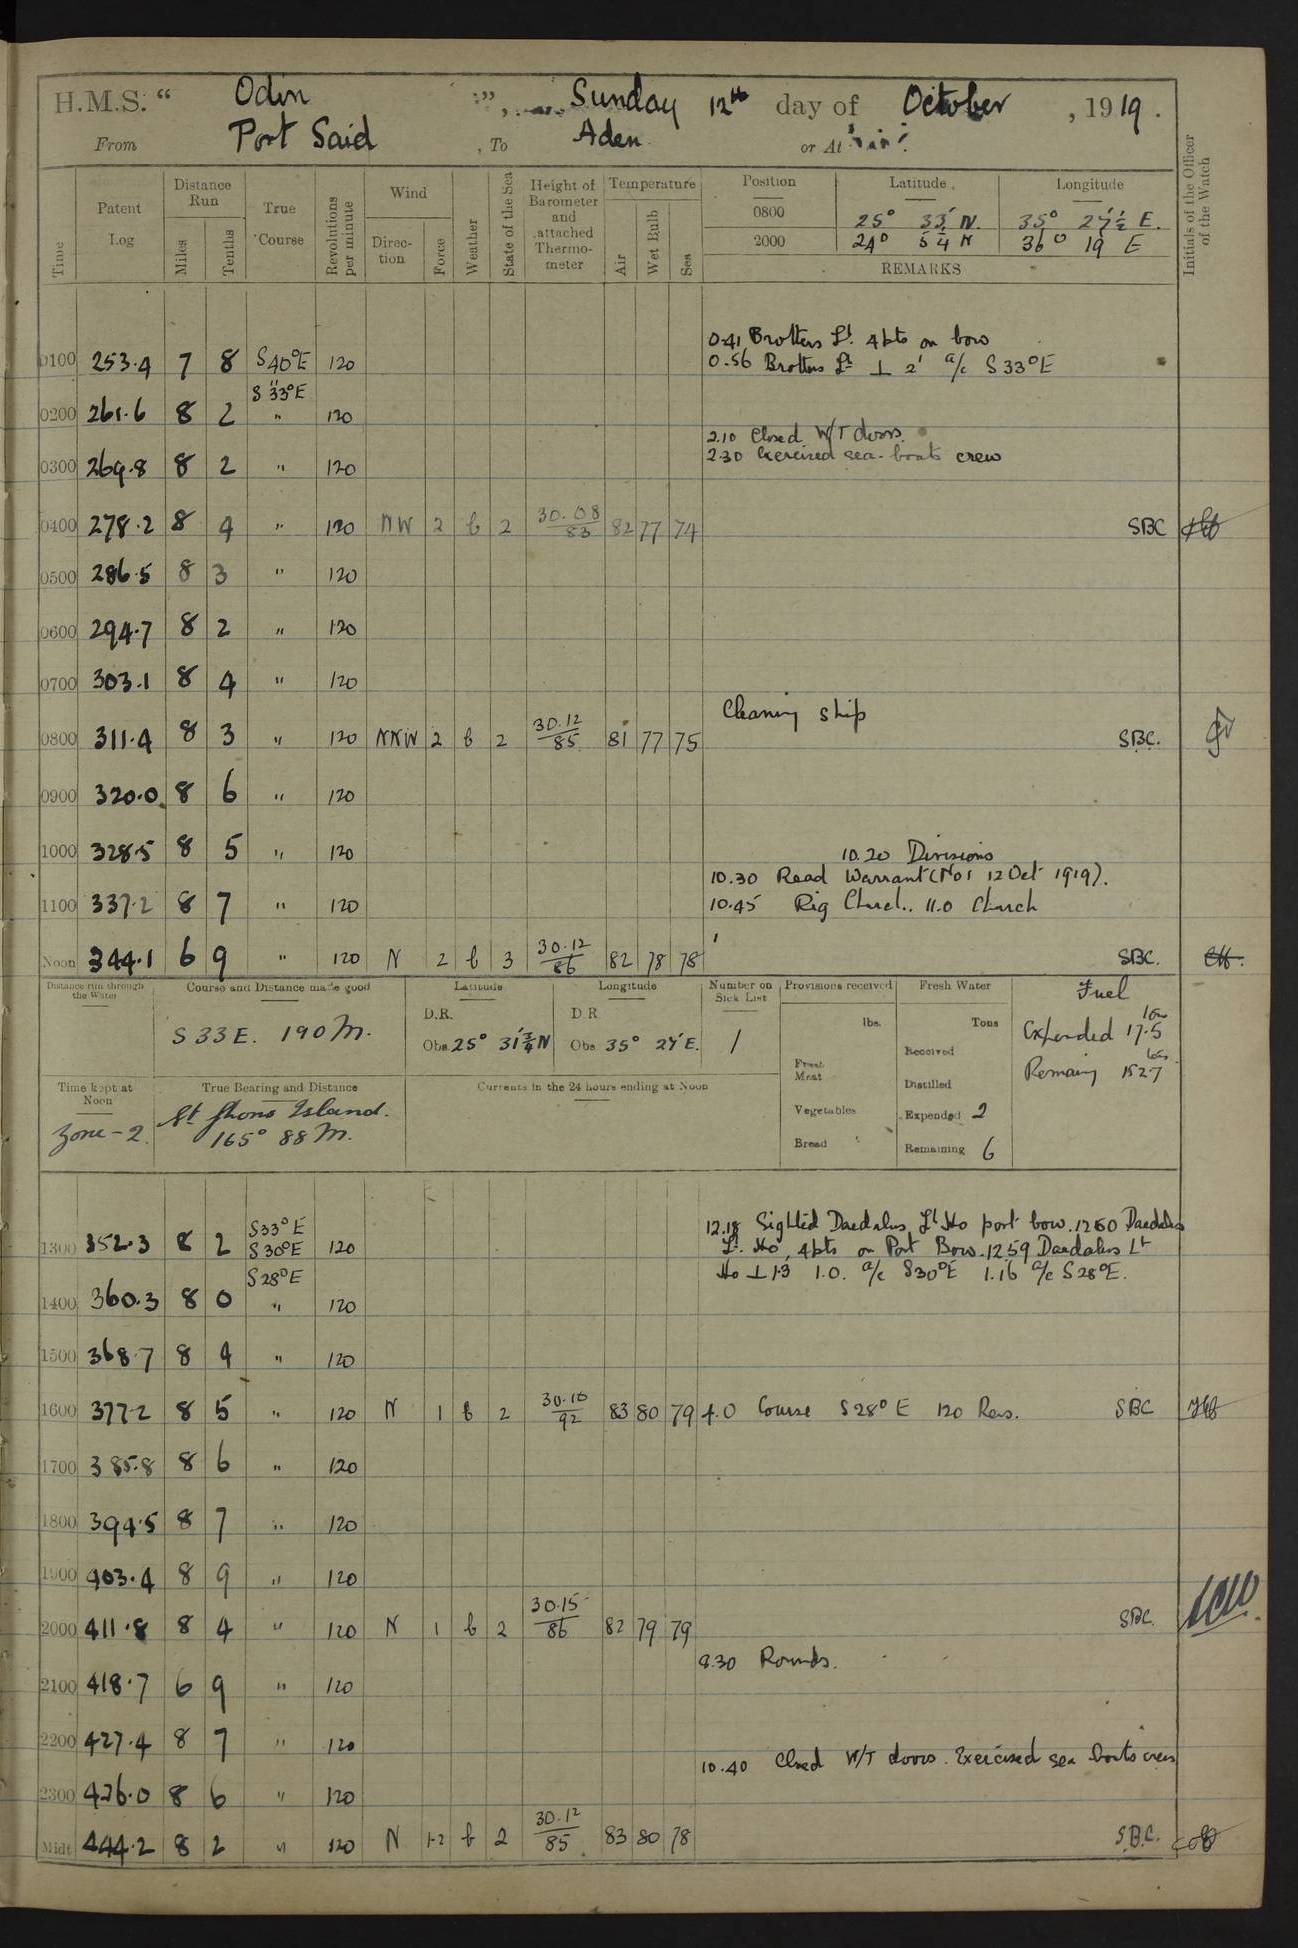 H.M.S. “ Odin ”, Sunday 12th day of October , 1919 .
From Port Said , To Aden or At
Time
Patent Log
Distance Run
Miles
Tenths
True Course
Revolutions per minute
Wind
Direction
Force
Weather
State of the Sea
Height of Barometer and attached Thermometer
Temperature
Air
Wet Bulb
Sea
Position Latitude Longitude
0800 25° 33' N. 35° 27½' E.
2000 24° 54 N 36° 19 E
REMARKS
Initials of the Officer of the Watch
0.41 Brothers Lt. 4 pts on bow
0100 253.4 7 8 S40°E 120 0.56 Brothers Lt ⊥ 2' a/c S 33°E
S 33°E
0200 261.6 8 2 " 120
2.10 Closed W/T doors.
2.30 Exercised sea-boats crew
0300 269.8 8 2 " 120
0400 278.2 8 4 " 120 NW 2 b 2 30.08/83 82 77 74 SBC
0500 286.5 8 3 " 120
0600 294.7 8 2 " 120
0700 303.1 8 4 " 120
Cleaning ship
0800 311.4 8 3 " 120 NNW 2 b 2 30.12/85 81 77 75 SBC.
0900 320.0 8 6 " 120
1000 328.5 8 5 " 120 10.20 Divisions
10.30 Read Warrant (No 1 12 Oct 1919).
1100 337.2 8 7 " 120 10.45 Rig Church.. 11.0 Church
Noon 344.1 6 9 " 120 N 2 b 3 30.12/86 82 78 78 SBC.
Distance run through the Water
Course and Distance made good
S 33 E. 190 M.
Latitude
D.R.
Obs 25° 31¾' N
Longitude
D R
Obs 35° 27' E.
Number on Sick List
1
Provisions received
lbs.
Fresh Meat
Vegetables
Bread
Fresh Water
Tons
Received
Distilled
Expended 2
Remaining 6
Fuel
Expended 17.5 tons
Remaining 1527 tons.
Time kept at Noon
Zone -2.
True Bearing and Distance
St Johns Island.
165° 88 M.
Currents in the 24 hours ending at Noon
S33°E 12.18 Sighted Daedalus Lt Ho port bow. 1250 Daedalus
1300 352.3 8 2 S30°E 120 Lt. Ho, 4 pts on Port Bow. 1259 Daedalus Lt
S28°E Ho ⊥ 1.3 1.0. a/c S30°E 1.16 a/c S28°E.
1400 360.3 8 0 " 120
1500 368.7 8 4 " 120
1600 377.2 8 5 " 120 N 1 b 2 30.10/92 83 80 79 4.0 Course S28°E 120 Revs. SBC
1700 385.8 8 6 " 120
1800 394.5 8 7 " 120
1900 403.4 8 9 " 120
2000 411.8 8 4 " 120 N 1 b 2 30.15/86 82 79 79 SBC.
8.30 Rounds.
2100 418.7 6 9 " 120
2200 427.4 8 7 " 120
10.40 Closed W/T doors. Exercised sea boats crew
2300 426.0 8 6 " 120
Midt 444.2 8 2 " 120 N 1-2 b 2 30.12/85 83 80 78 S.B.C.